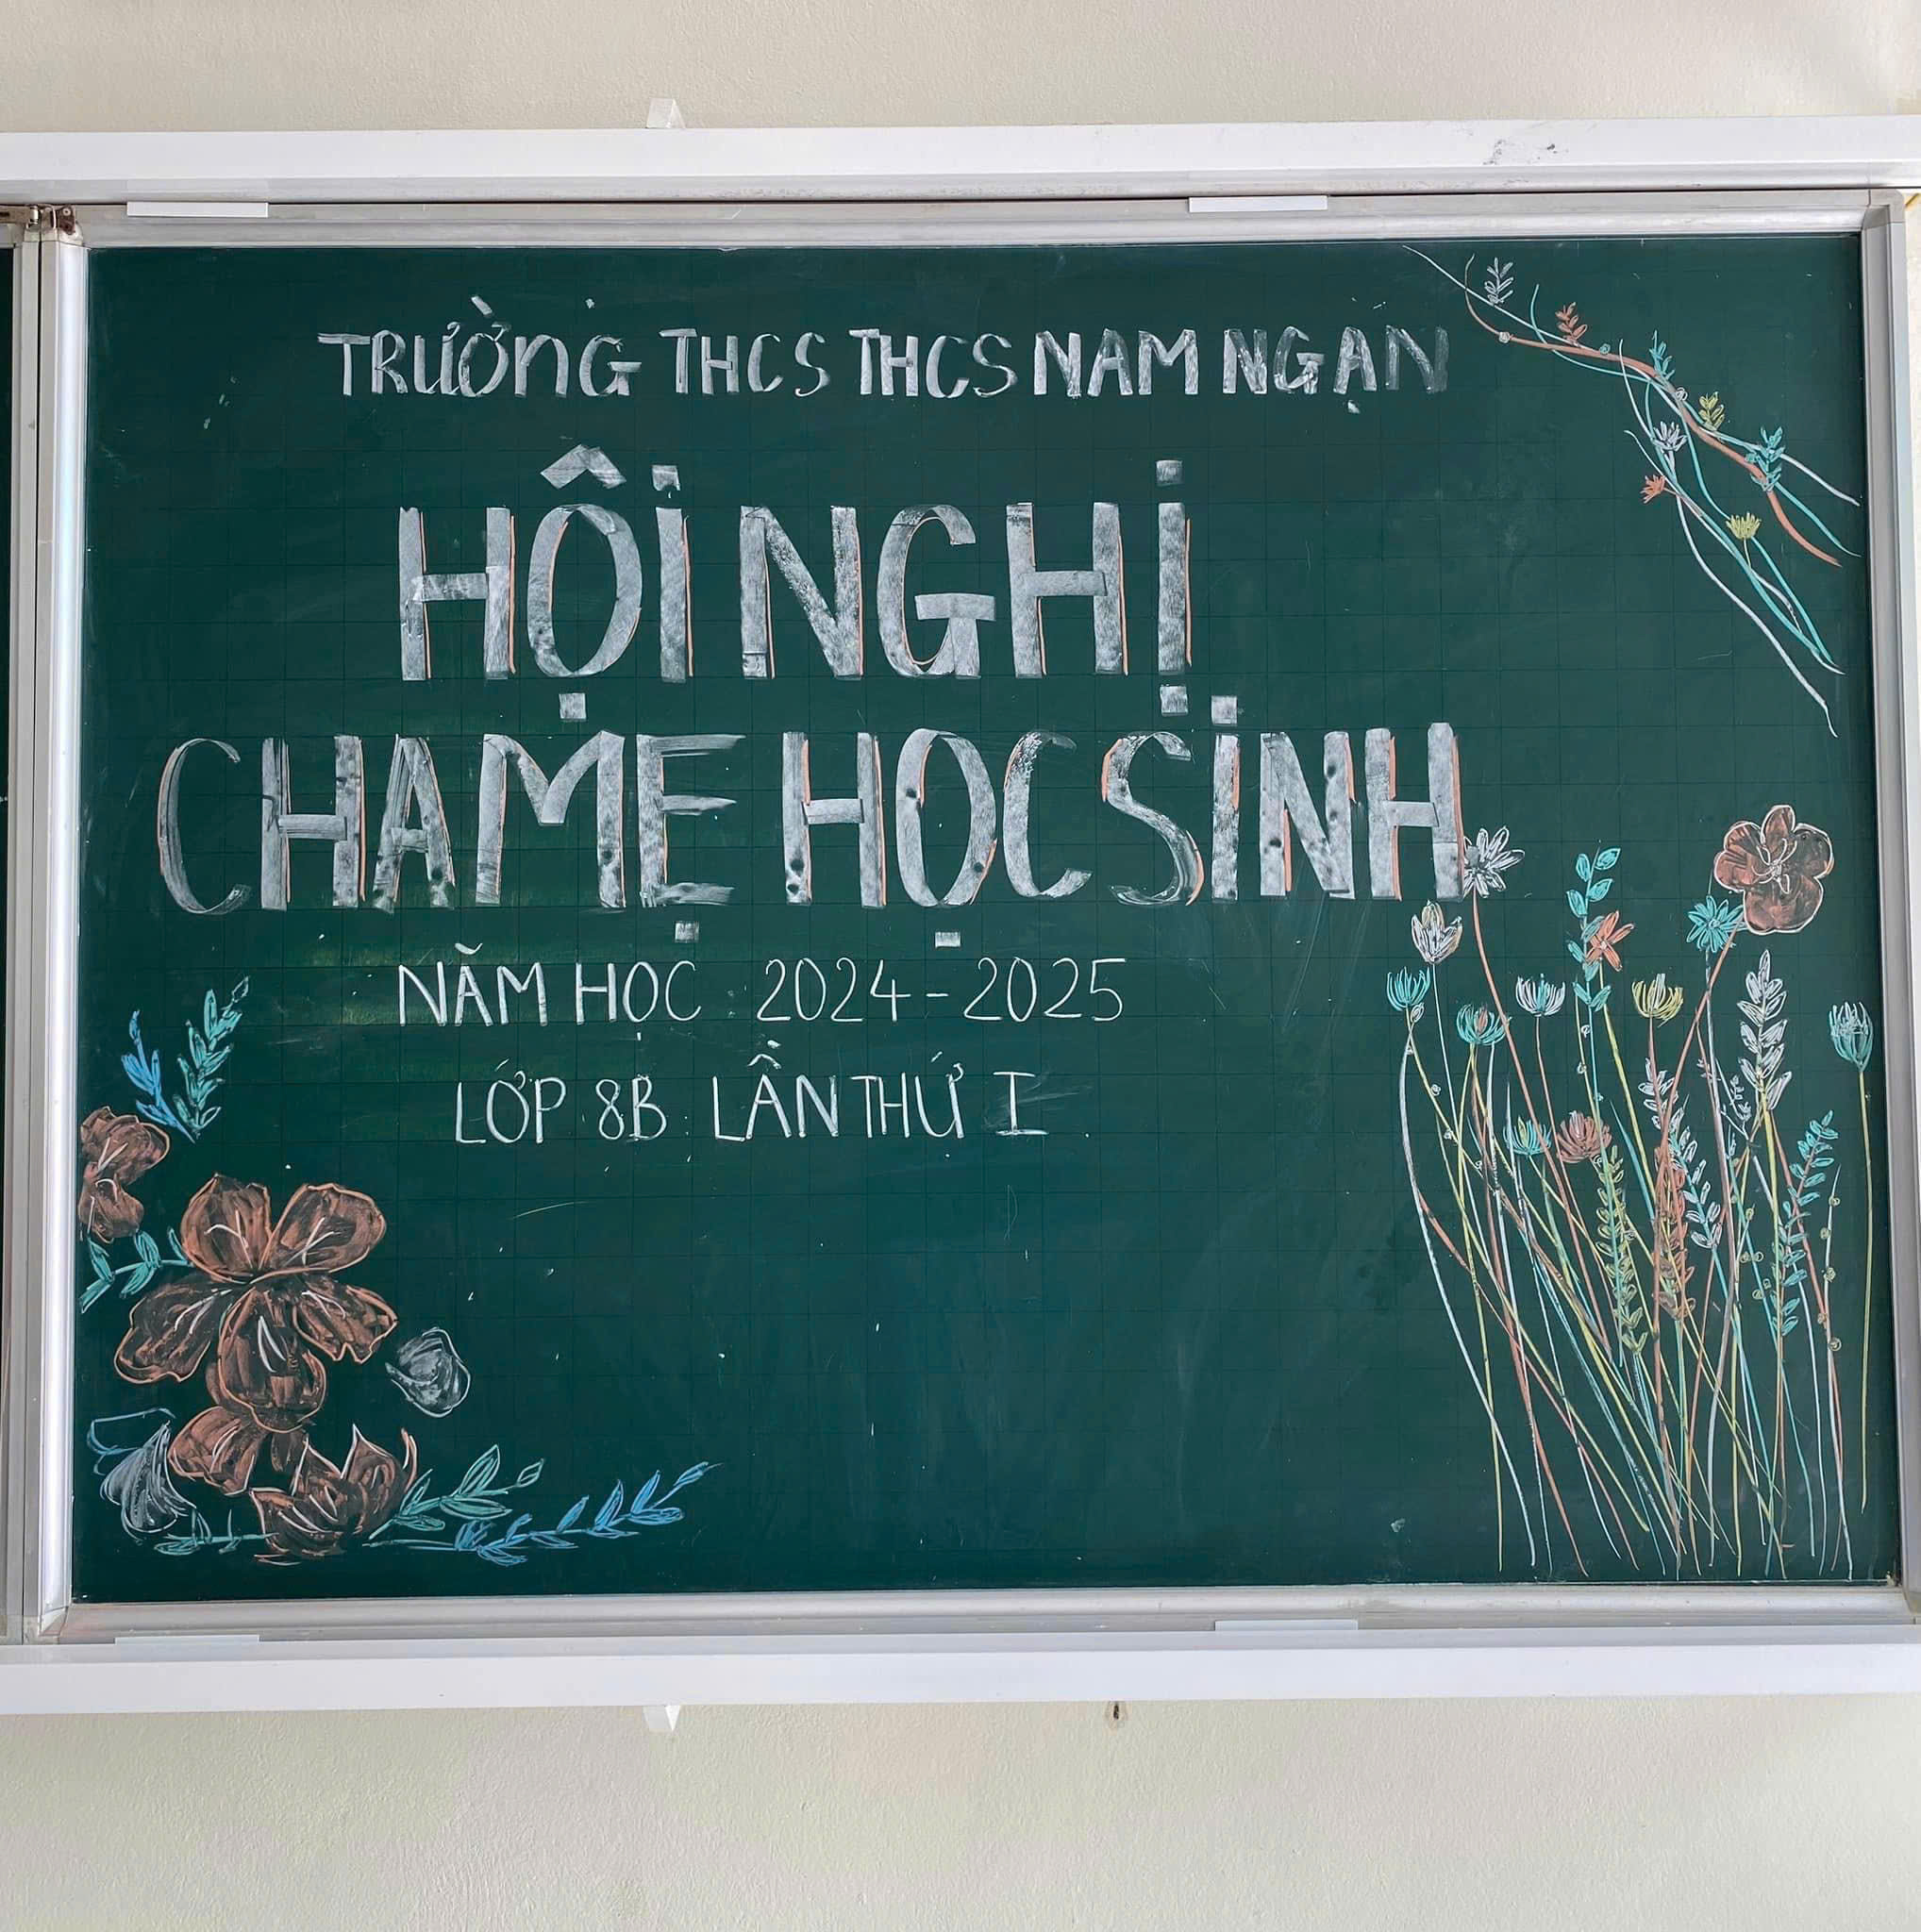 TRƯỜNG THCS THCS NAM NGẠN
HỘI NGHỊ
CHA MẸ HỌC SINH
NĂM HỌC 2024-2025
LỚP 8B LẦN THỨ I